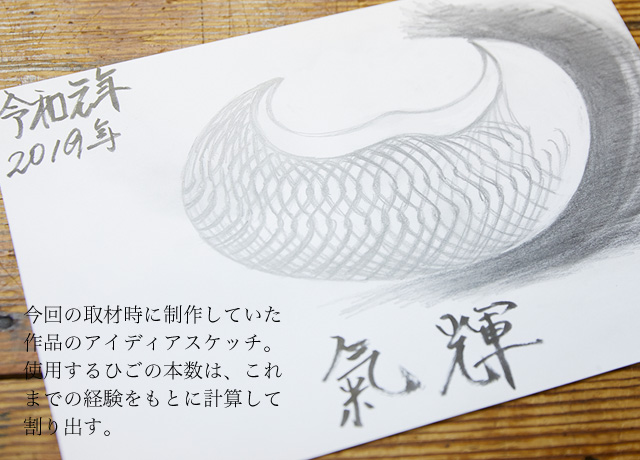 令和元年
2019年
氣輝
今回の取材時に制作していた
作品のアイディアスケッチ。
使用するひごの本数は、これ
までの経験をもとに計算して
割り出す。